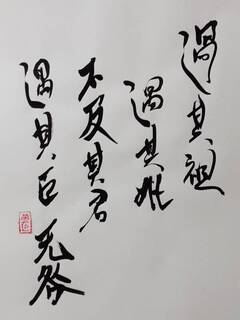 過其祖
遇其妣
不及其君
遇其臣无咎